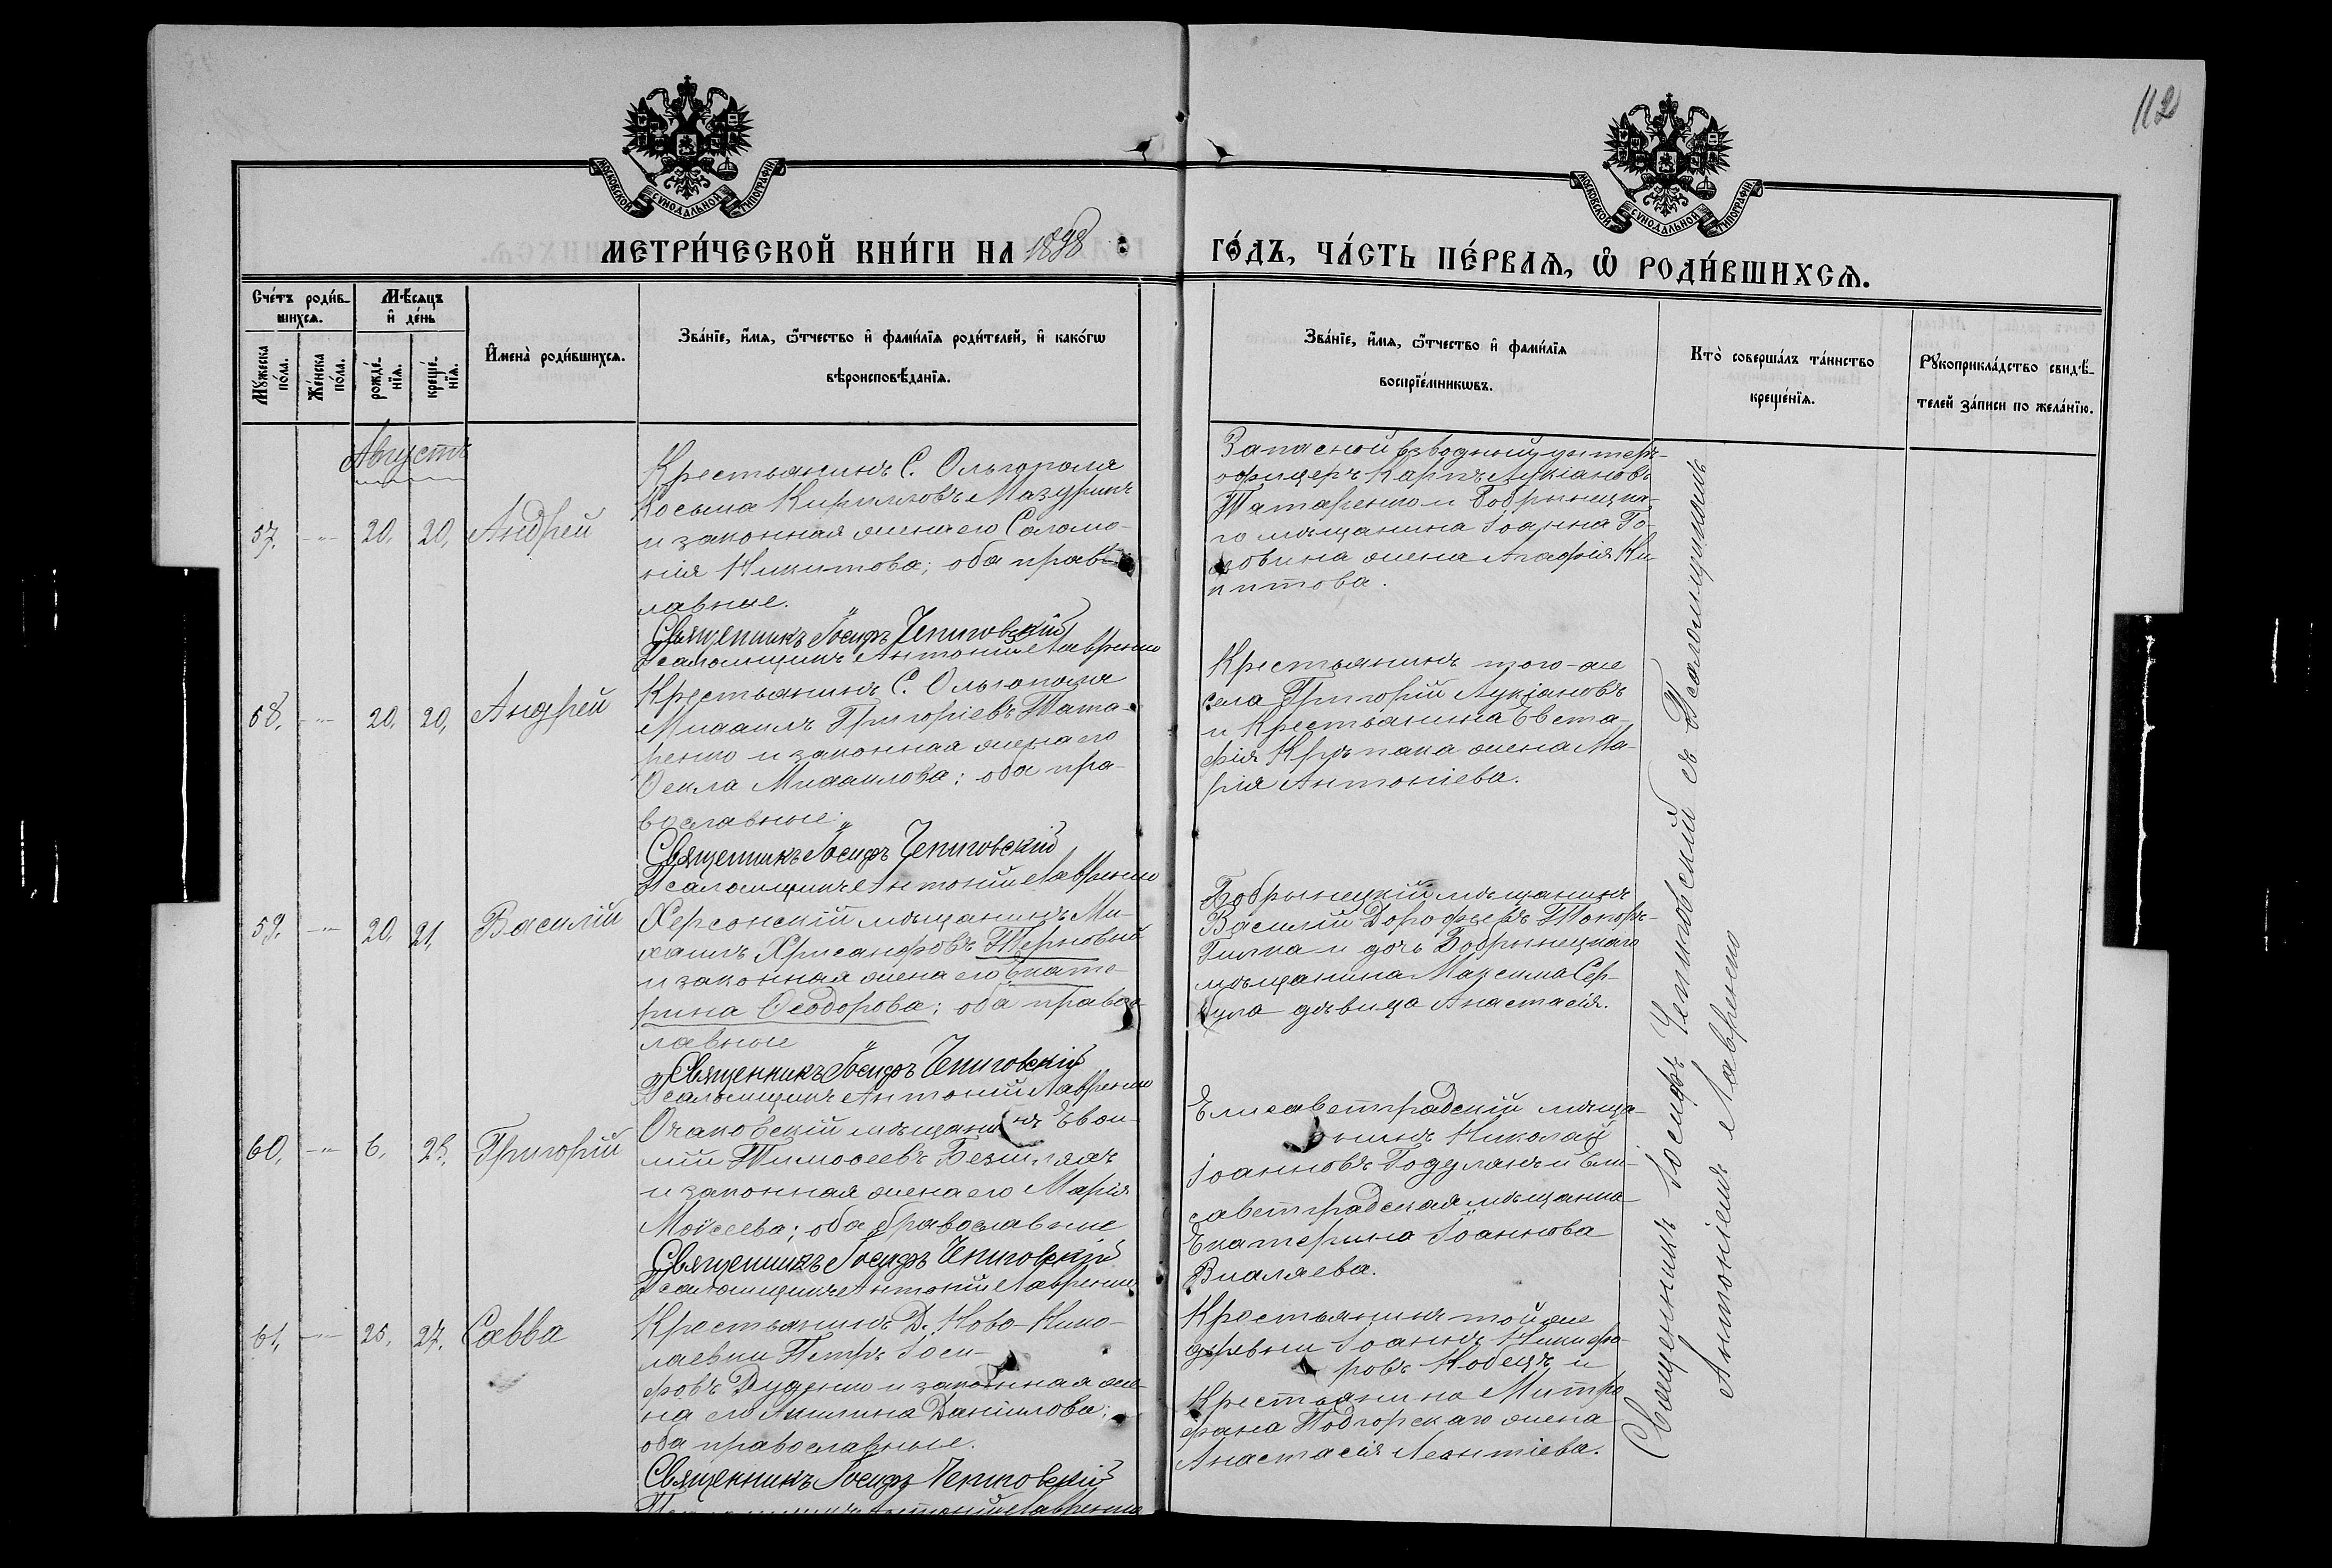 112
МОСКОВСКОЙ СѴНОДАЛЬНОЙ ТИПОГРАФІИ
МОСКОВСКОЙ СѴНОДАЛЬНОЙ ТИПОГРАФІИ
МЕТРИ́ЧЕСКОЙ КНИ́ГИ НА 1898
ГО́ДЪ, ЧА́СТЬ ПЕ́РВАѦ, Ѡ҆ РОДИ́ВШИХСѦ.
Сче́тъ роди́в-
шихсѧ.
Мѣ́сяцъ
и҆ де́нь
Мꙋ́жеска
по́ла.
Же́нска
по́ла.
рожде́-
нїѧ.
креще́-
нїѧ.
И҆мена̀ роди́вшихсѧ.
Зва́нїе, и҆́мѧ, ѻ҆́тчество и҆ фами́лїѧ роди́телей, и҆ како́гѡ
вѣроисповѣ́данїѧ.
Зва́нїе, и҆́мѧ, ѻ҆́тчество и҆ фами́лїѧ
воспрїе́мникѡвъ.
Кто̀ соверша́лъ та́инство
креще́нїѧ.
Рꙋкоприкла́дство свидѣ́-
телей за́писи по жела́нїю.
Августъ
57. -"- 20. 20. Андрей
Крестьянинъ С. Ольгополя
Косьма Кирилловъ Мазуринъ
и законная жена его Соломо-
нія Никитова; оба право-
лавные.
Священникъ Іосифъ
Псаломщикъ Антоній Лавренко
Запасной взводный унтеръ-
офицеръ Карпъ Лукіановъ
Татаренко и Бобринецка-
го мѣщанина Іоанна Го-
ловина жена Агафія Ки-
питова.
58. -"- 20. 20. Андрей
Крестьянинъ С. Ольгополя
Михаилъ Григоріевъ Тата-
ренко и законная жена его
Ѳекла Михаилова; оба пра-
вославные.
Священникъ Іосифъ
Псаломщикъ Антоній Лавренко
Крестьянинъ того-же
села Григорій Лукіановъ
и Крестьянина Евста-
фія Крѣпака жена Ма-
рія Антоніева.
59. -"- 20. 21. Василій
Херсонскій мѣщанинъ Ми-
хаилъ Хрисанфовъ Терновый
и законная жена его Екате-
рина Ѳеодорова; оба правос-
лавные
Священникъ Іосифъ
Псаломщикъ Антоній Лавренко
Бобрынецкій мѣщанинъ
Василій Дорофеевъ Токарь-
Гилка и дочь Бобрынецкаго
мѣщанина Максима Сер-
була дѣвица Анастасія.
60. -"- 6. Григорій
Очаковскій мѣщанинъ Евѳи-
мій Тимоѳеевъ
и законная жена его Марія
Моѵсеева; оба православные
Священникъ Іосифъ
Псаломщикъ Антоній Лавренко
Елисаветградскій мѣща-
нинъ Николай
Іоанновъ Годулянъ и Ели-
саветградская мѣщанка
Екатерина Іоаннова
61. -"- 25. 27. Савва
Крестьянинъ Д. Ново-Нико-
лаевки Петръ Іоси-
фовъ Дуденко и законная же-
на его Акилина Даніилова;
оба православные.
Священникъ Іосифъ
Псаломщикъ Антоній Лавренко
Крестьянинъ той же
деревни Іоаннъ Никифо-
ровъ Кобецъ и
Крестьянина Митро
фана Подгорскаго жена
Анастасія Леонтіева.
Священникъ Іосифъ съ Псаломщикомъ
Антоніемъ Лавренко